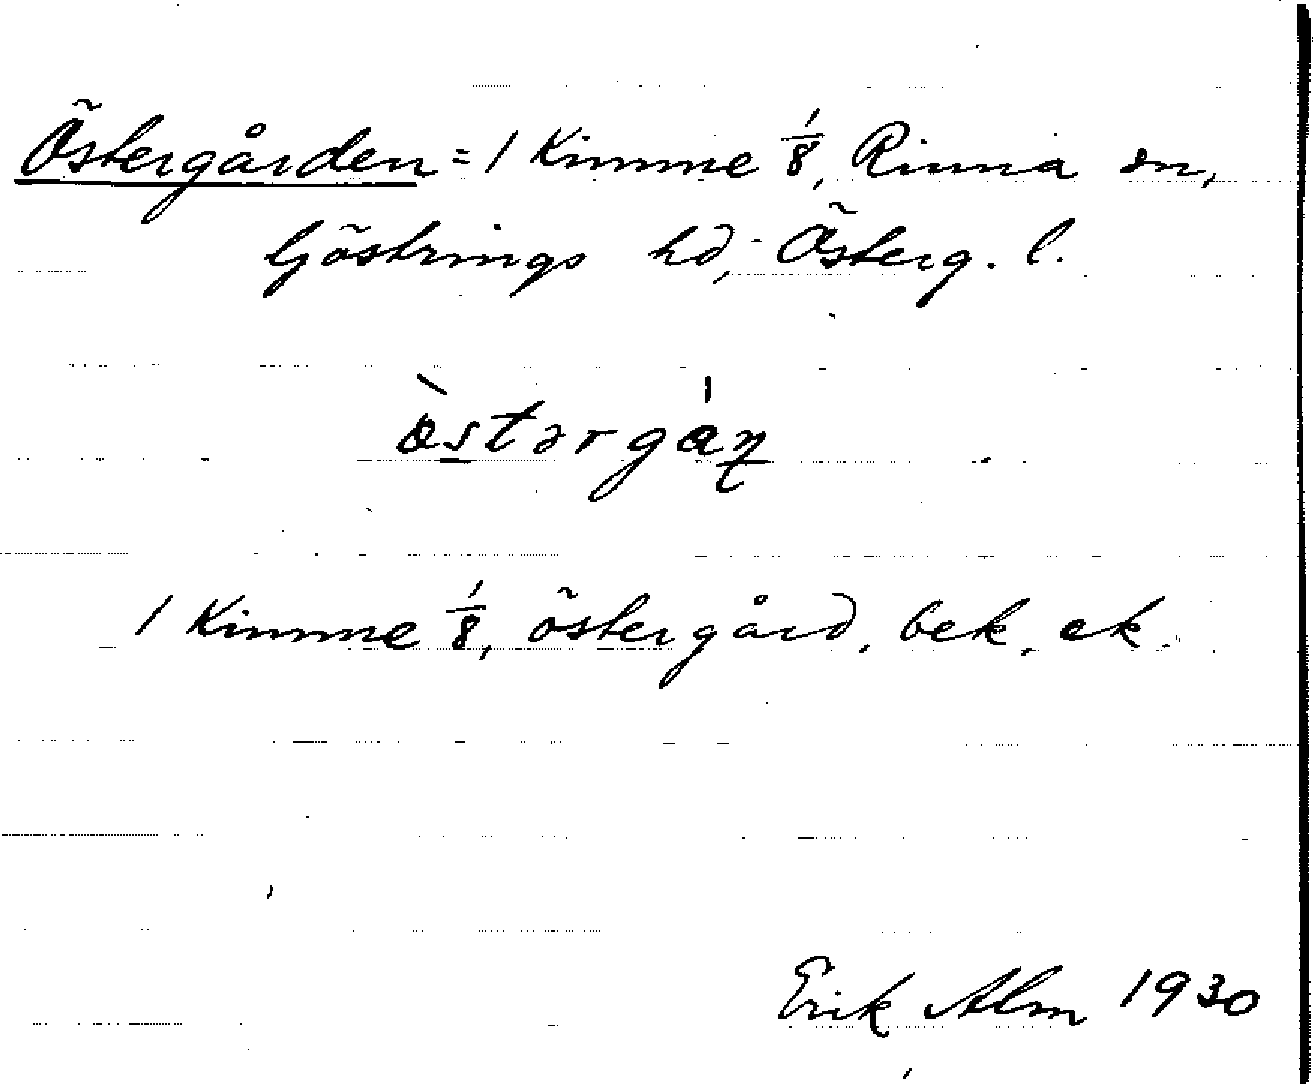 Östergården = 1 Kimme 1/8, Rinna sn,
Göstrings hd, Österg. l.
1 Kimme 1/8, östergård, bek. ek.
Erik Alm 1930